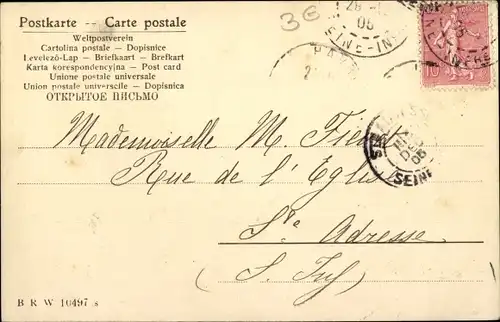 Postkarte -- Carte postale
Weltpostverein
Cartolina postale – Dopisnice
Levelező-Lap – Briefkaart – Brefkort
Karta korespondencyjna – Post card
Unione postale universale
Union postale universcile – Dopisnica
ОТКРЫТОЕ ПИСЬМО
3€
28
05
SEINE-INF
10
DEC
05
SEINE
Mademoiselle M.
Rue de l'Eglise
Ste Adresse
(S. Inf)
B R W 10497 s